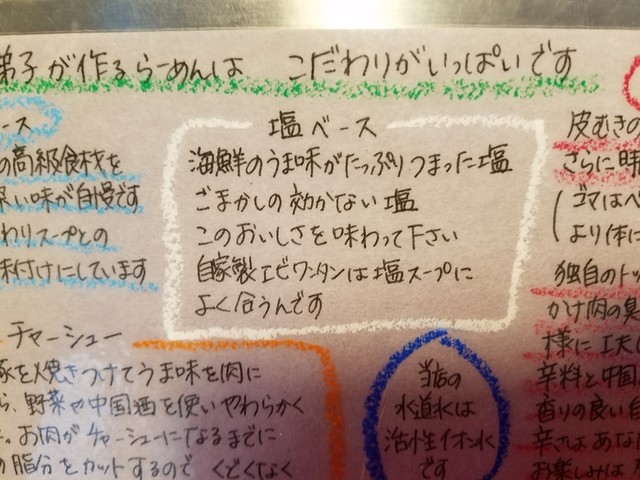 弟子が作るらーめんは こだわりがいっぱいです
ース
の高級食材を
深い味が自慢です
わりスープとの
味付けにしています
塩ベース
海鮮のうま味がたっぷりつまった塩
ごまかしの効かない塩
このおいしさを味わって下さい
自家製エビワンタンは塩スープに
よく合うんです
皮むきの
さらに
ゴマはペ
より体に
独自のトッ
かけ肉の臭
様に工夫
辛料と中国
香りの良い
辛さはあな
お楽しみは
チャーシュー
豚を焼きつけてうま味を肉に
ら、野菜や中国酒を使いやわらかく
。お肉がチャーシューになるまでに
の脂分をカットするので くどくなく
当店の
水道水は
活性イオン水
です